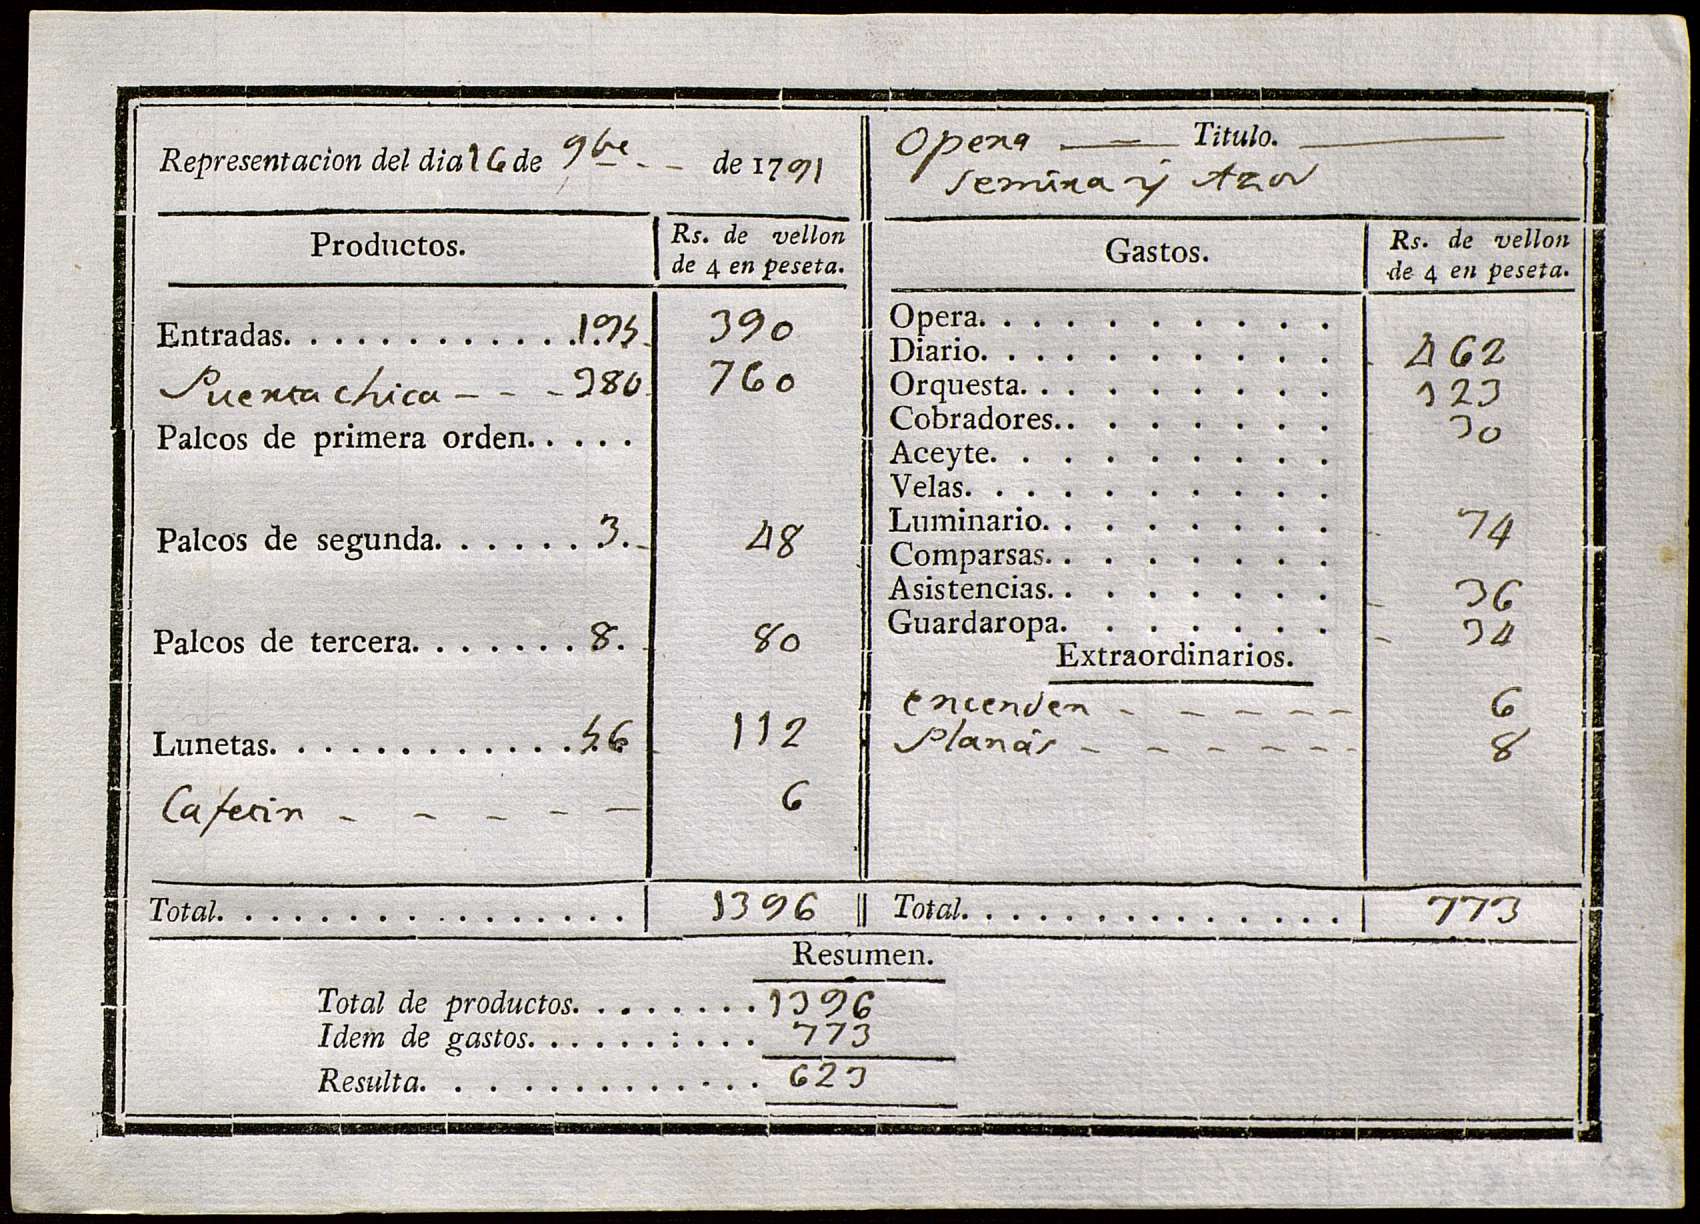 Representacion del dia 16 de 9bre de 1791
Productos.
Rs. de vellon
de 4 en peseta.
Entradas. . . . . . . . . . . . 195. 390
Puerta chica - - - 380 760
Palcos de primera orden. . . . .
Palcos de segunda. . . . . . 3. 48
Palcos de tercera. . . . . . . 8. 80
Lunetas. . . . . . . . . . . . 56 112
Cafetin - - - - - 6
Total. . . . . . . . . . . . . . . . 1396
Opera — Titulo. —
Semira y Azor
Gastos.
Rs. de vellon
de 4 en peseta.
Opera. . . . . . . . . .
Diario. . . . . . . . . . 462
Orquesta. . . . . . . . . 123
Cobradores. . . . . . . . 30
Aceyte. . . . . . . . . .
Velas. . . . . . . . . .
Luminario. . . . . . . . 74
Comparsas. . . . . . . .
Asistencias. . . . . . . . 36
Guardaropa. . . . . . . 34
Extraordinarios.
encender - - - - - 6
Planas - - - - - 8
Total. . . . . . . . . . . . . . 773
Resumen.
Total de productos. . . . . . . . 1396
Idem de gastos. . . . . . : . . . 773
Resulta. . . . . . . . . . . . . 623